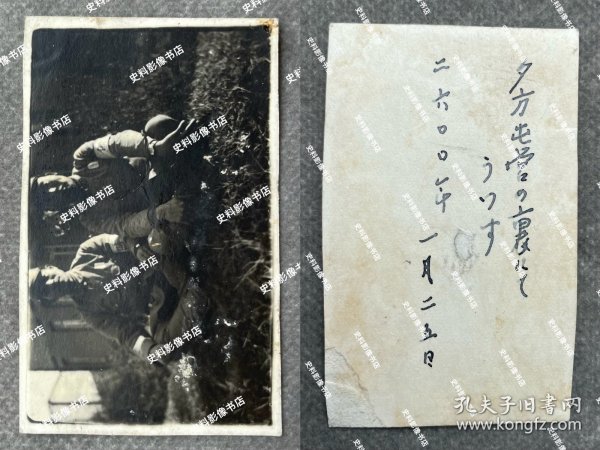 夕方屯営の裏にて
うつす
二六〇〇年 一月二五日
史料影像书店
孔夫子旧书网
www.kongfz.com